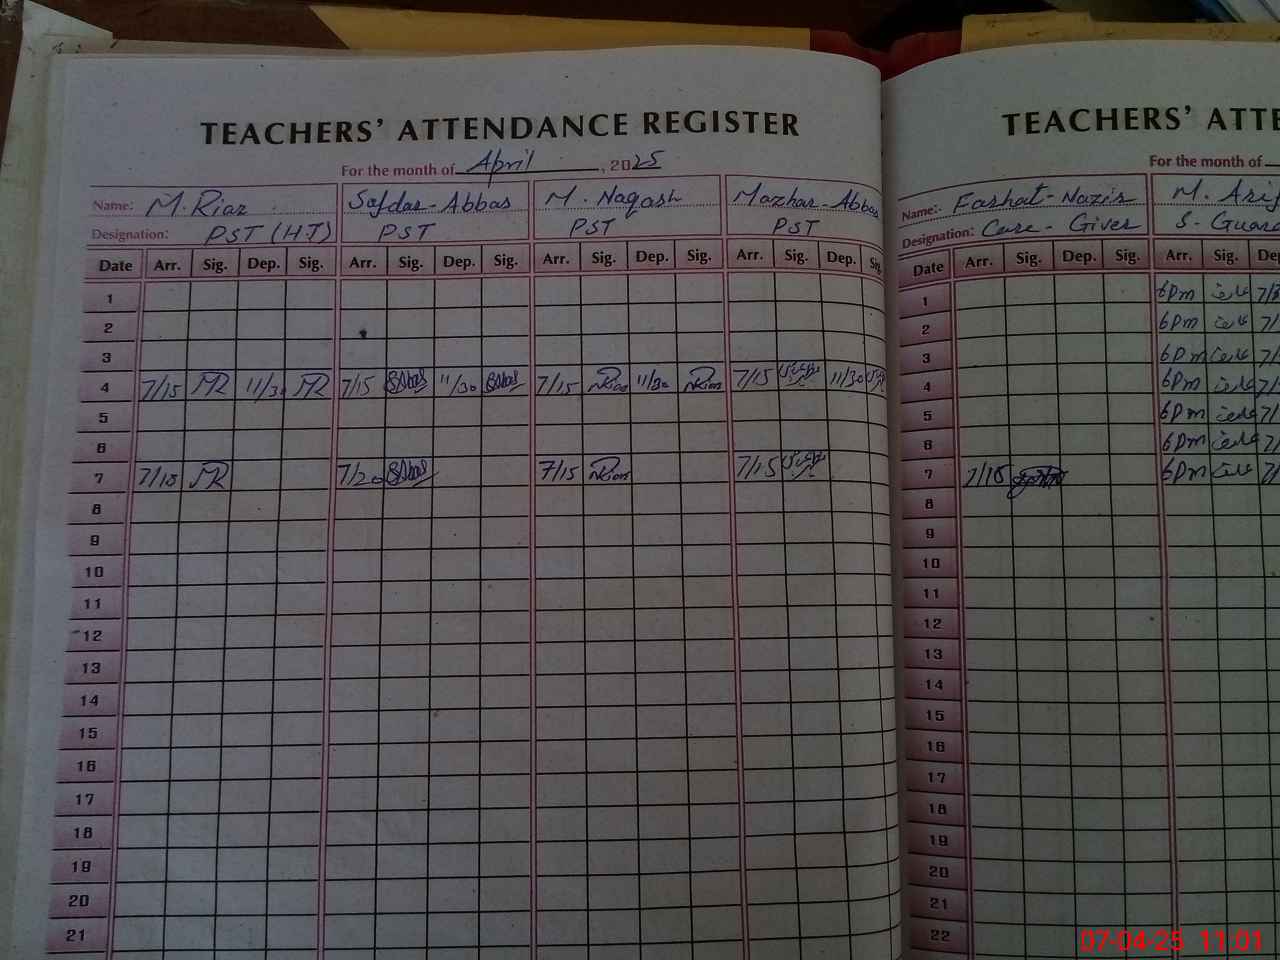 TEACHERS' ATTENDANCE REGISTER
For the month of April, 2025
Name: M. Riaz Safdar-Abbas M. Naqash Mazhar-Abbas
Designation: PST (HT) PST PST PST
Date Arr. Sig. Dep. Sig. Arr. Sig. Dep. Sig. Arr. Sig. Dep. Sig. Arr. Sig. Dep. Sig.
1
2
3
4 7/15 MR 11/30 MR 7/15 SAbbas 11/30 SAbbas 7/15 11/30 7/15 11/30
5
6
7 7/15 MR 7/20 SAbbas 7/15 7/15
8
9
10
11
12
13
14
15
16
17
18
19
20
21
TEACHERS' ATTE
For the month of
Name:- Farhat-Nazir M. Arif
Designation: Care-Giver S-Guard
Date Arr. Sig. Dep. Sig. Arr. Sig. Dep
1 6Pm
2 6Pm
3 6Pm
4 6Pm
5 6Pm
6 6Pm
7 7/15 6Pm
8
9
10
11
12
13
14
15
16
17
18
19
20
21
22
07-04-25 11:01